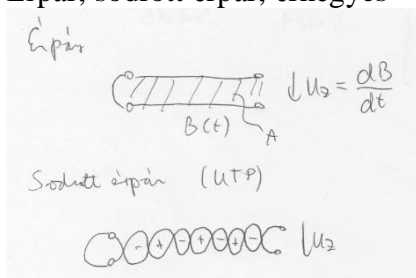 Érpár, sodrott érpár, érnégyes
Érpár
↓ Uz = dB/dt
B(t) A
Sodrott érpár (UTP)
- + - + - + - ↓Uz